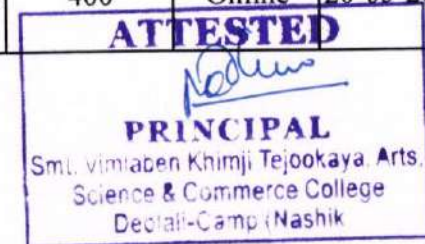 400 Online
ATTESTED
PRINCIPAL
Smt. Vimlaben Khimji Tejookaya. Arts,
Science & Commerce College
Deolali-Camp (Nashik